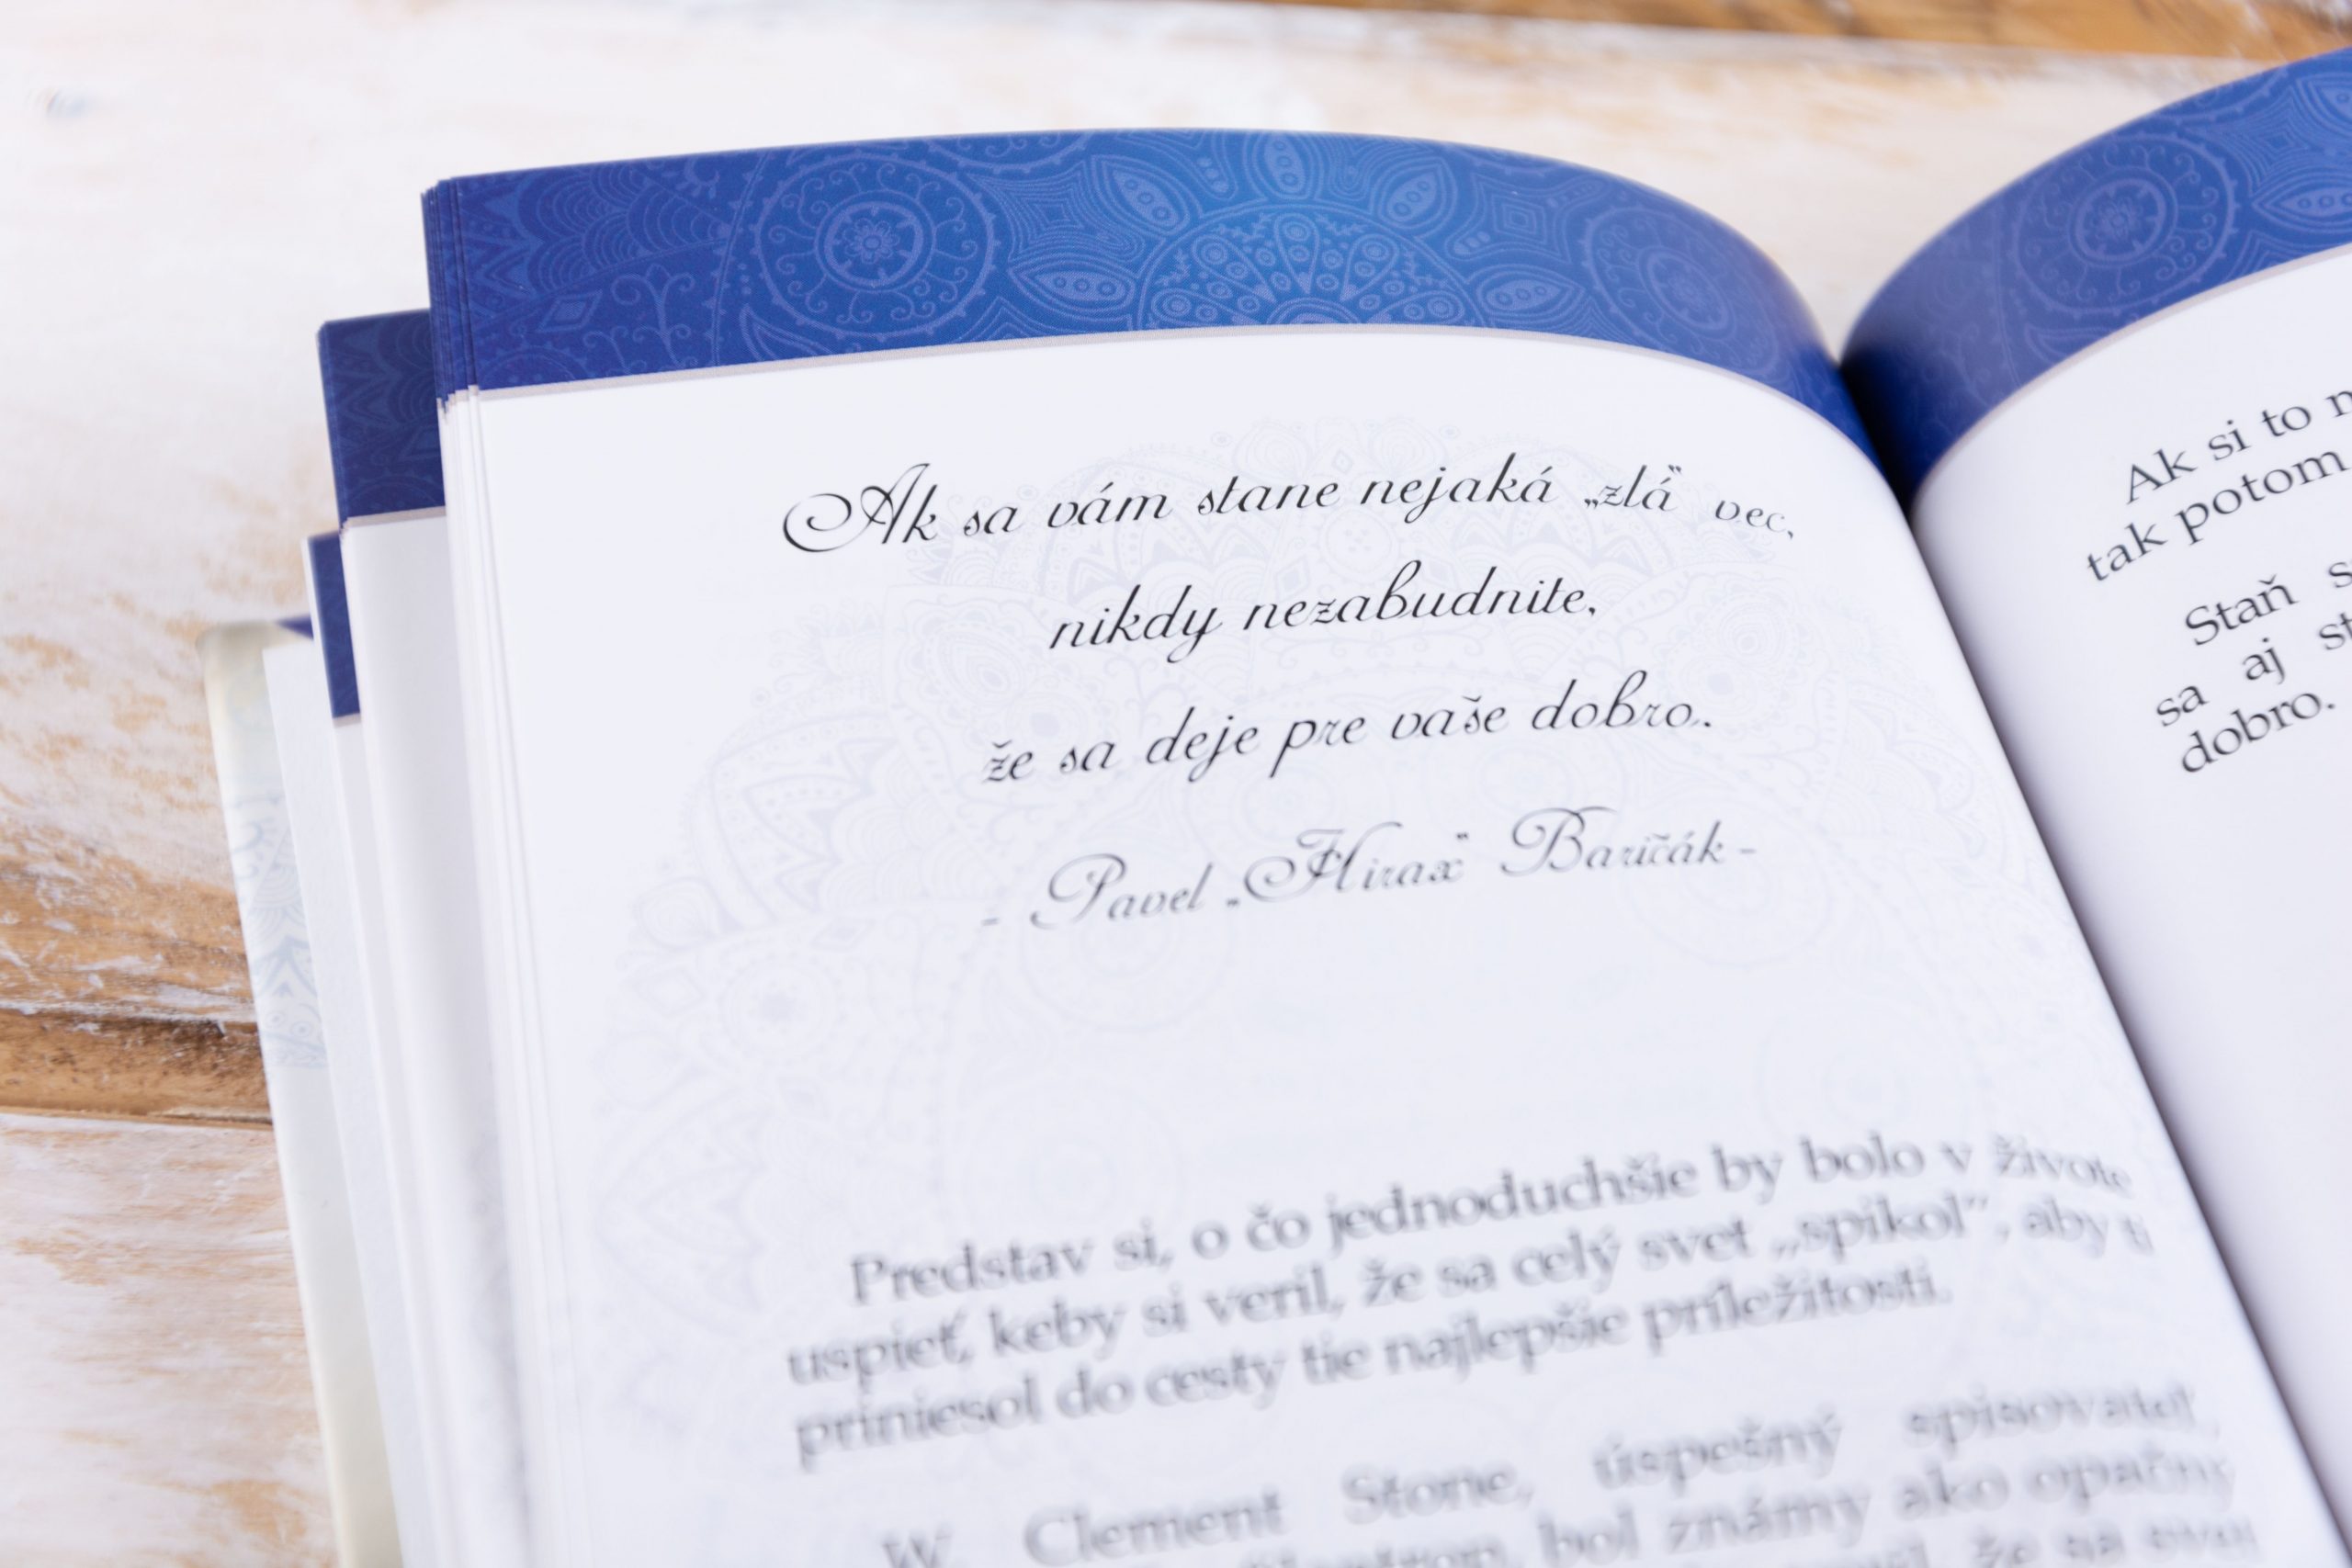 Ak sa vám stane nejaká „zlá“ vec,
nikdy nezabudnite,
že sa deje pre vaše dobro.
- Pavel „Hirax“ Baričák -
Predstav si, o čo jednoduchšie by bolo v živote
uspieť, keby si veril, že sa celý svet „spikol“, aby ti
priniesol do cesty tie najlepšie príležitosti.
W. Clement Stone, úspešný spisovateľ,
bol známy ako opačný
že sa
Ak si to
tak potom
Staň
sa aj
dobro.